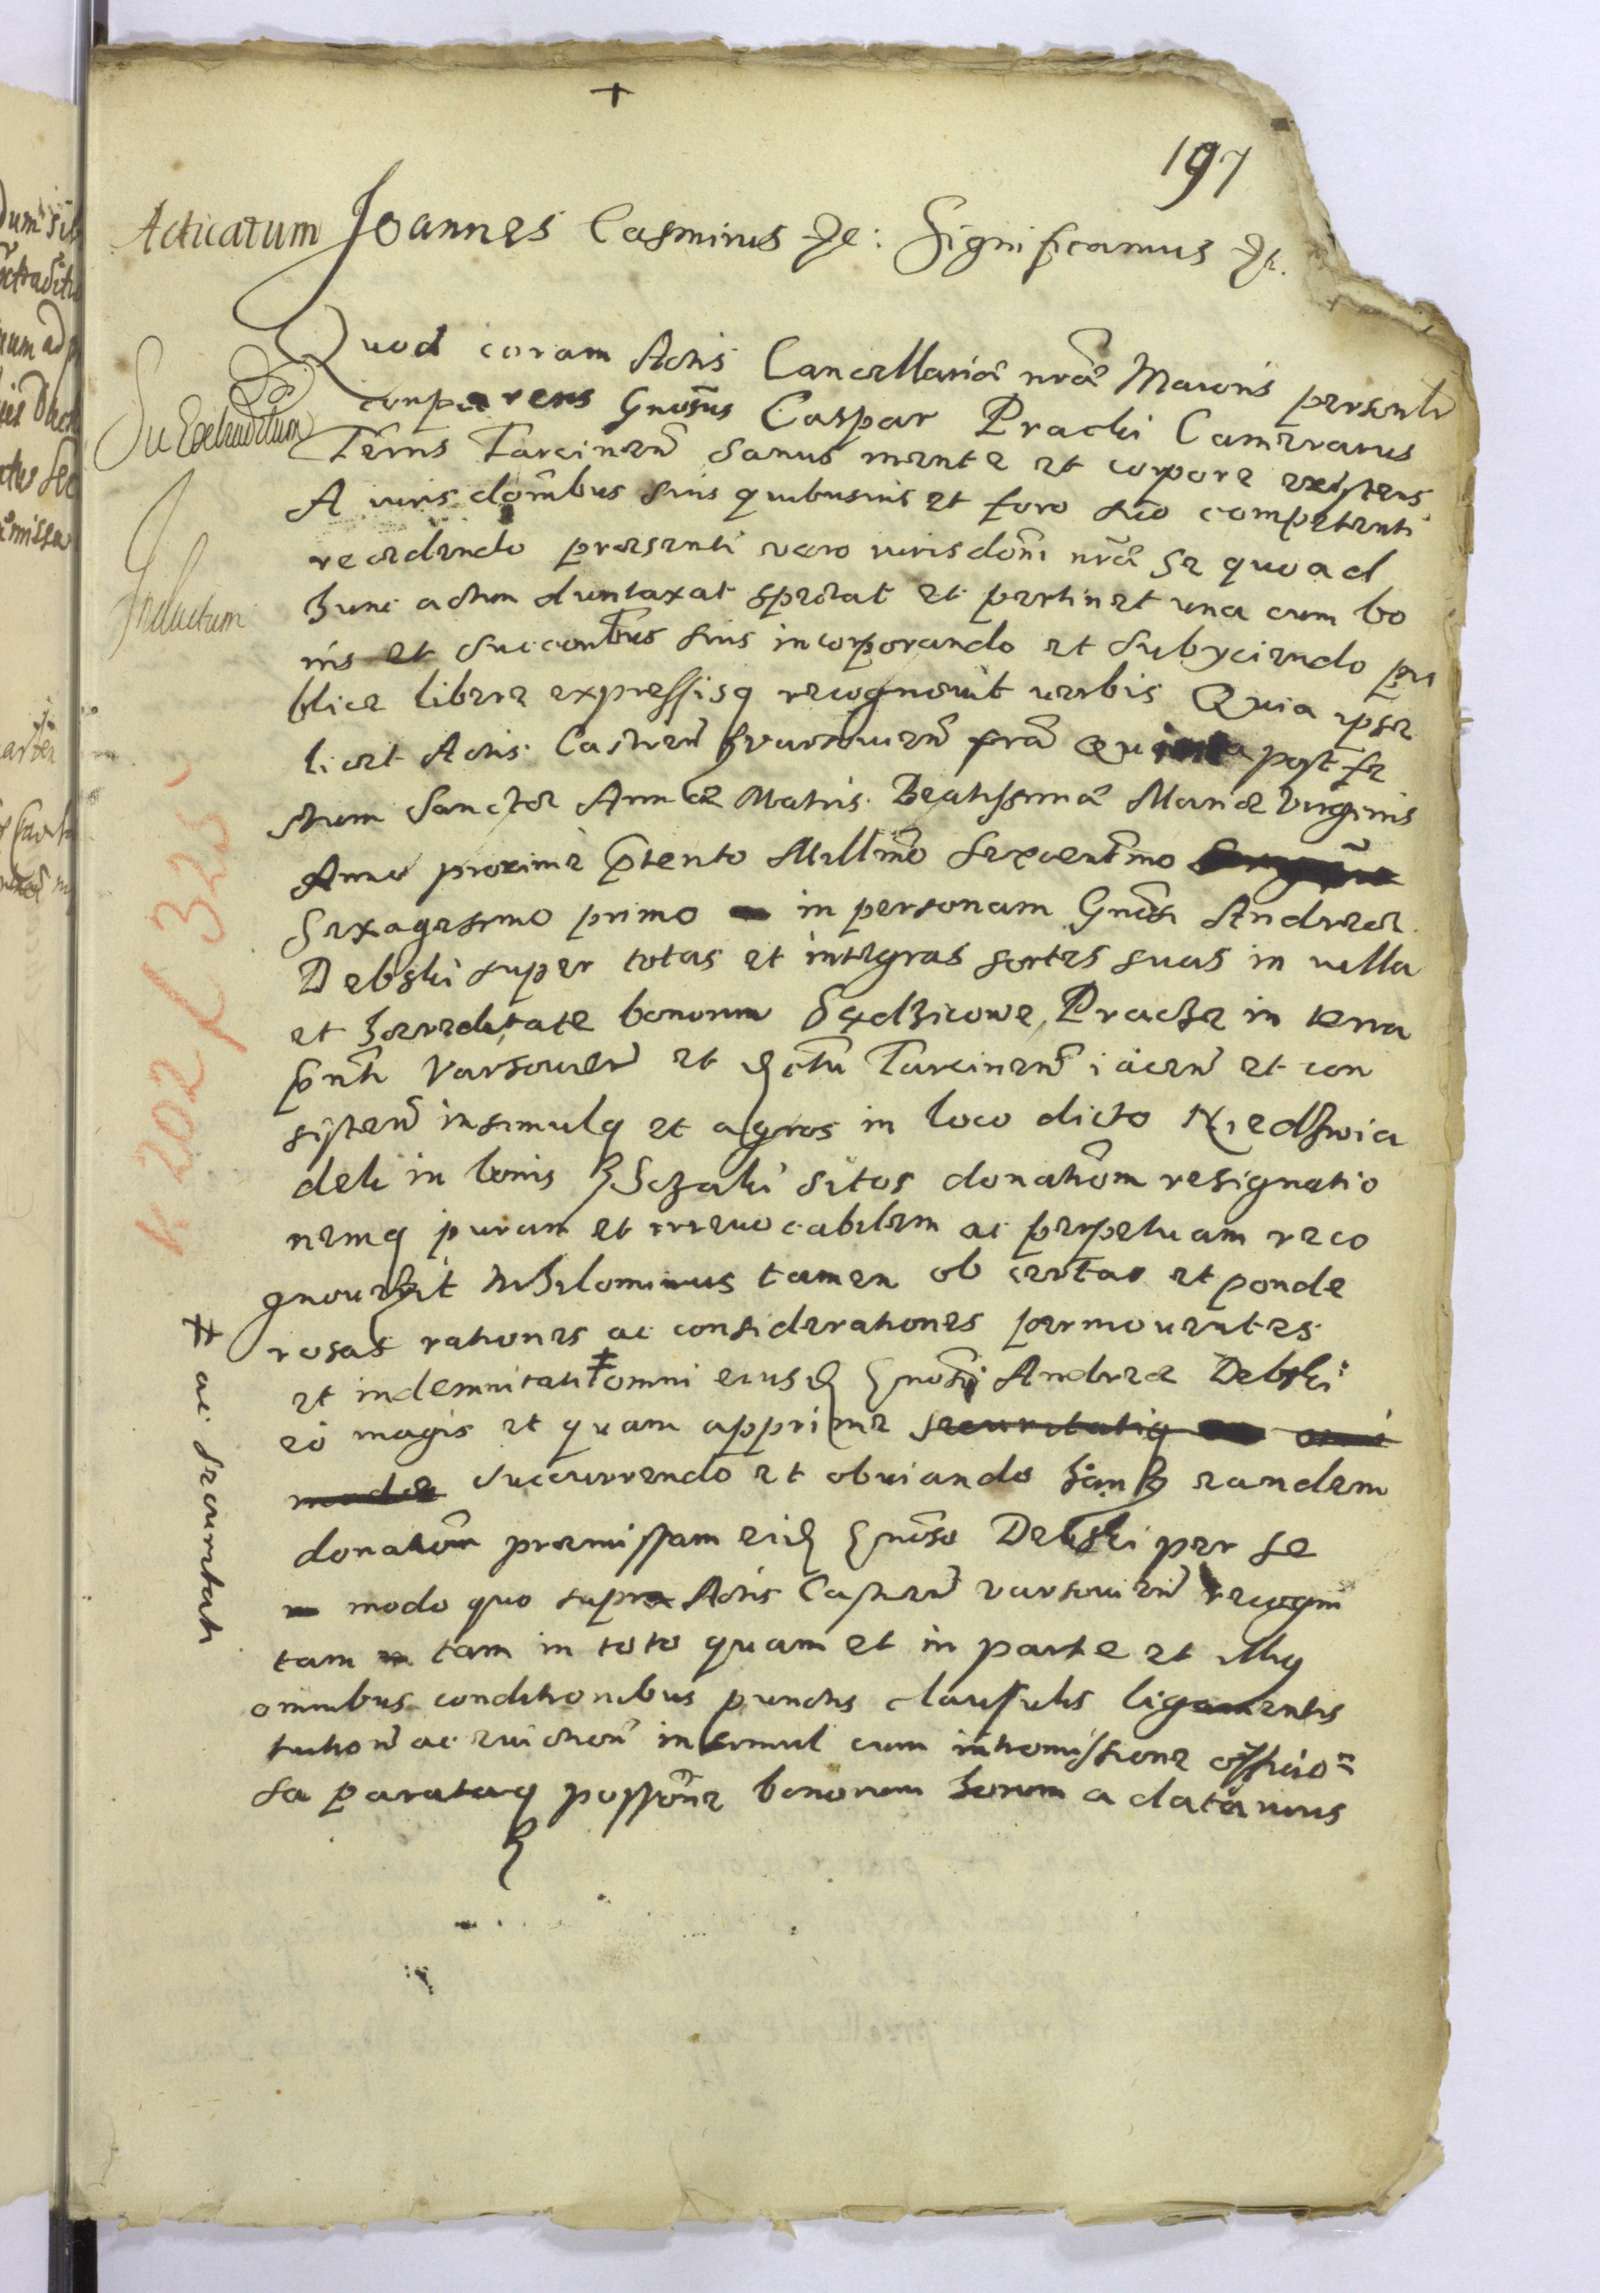 +
197
Acticatum Joannes Casimirus etc: Significamus etc.
Quod coram Actis Cancellariae nrae Maioris personlr
Su Extraditum
comparens Gnosus Caspar Pracki Camerarius
Terris Tarcinen sanus mente et corpore existens
A iurisdombus suis quibusuis et foro suo competenti
recedendo praesenti vero iurisdoni nrae se quo ad
Inductum
hunc actum duntaxat spectat et pertinet una cum bo
nis et succoribus suis incorporando et subyciendo pu
blice libere expressisq recognouit verbis Quia ipse
licet Actis Castren Varsouien fria Quinta post fe
stum Sanctae Annae Matris Beatissimae Mariae Virginis
Anno proxime pterito Millmo sexcentmo
Sexagesimo primo in personam Gnosi Andreae
Debski super totas et integras sortes suas in villa
et haereditate bonorum Sędzicowe Pracze in terra
pnti Varsouien et dictu Tarcinen iacen et con
sisten insimulq et agros in loco dicto Niedzwia
dek in bonis sitos donationem resignatio
nemq puram et irreuocabilem ac perpetuam reco
gnouerit Nihilominus tamen ob certas et ponde
rosas rationes ac considerationes permouentes
et indemnitati ‡ omni eiusd Gnosi Andreae Debski
‡ ac securitati
eo magis et quam apprime securitatiq omni
modae succurrendo et obuiando eandem
donationem praemissam eid Gnoso Debski per se
modo quo supra Actis Castren Varsouien recogni
tam tam in toto quam et in parte et illiq
omnibus conditionibus punctis clausulis ligamentis
tution ac euiction insimul cum intromissione officio=
sa parataq possone bonorum horum a data unius